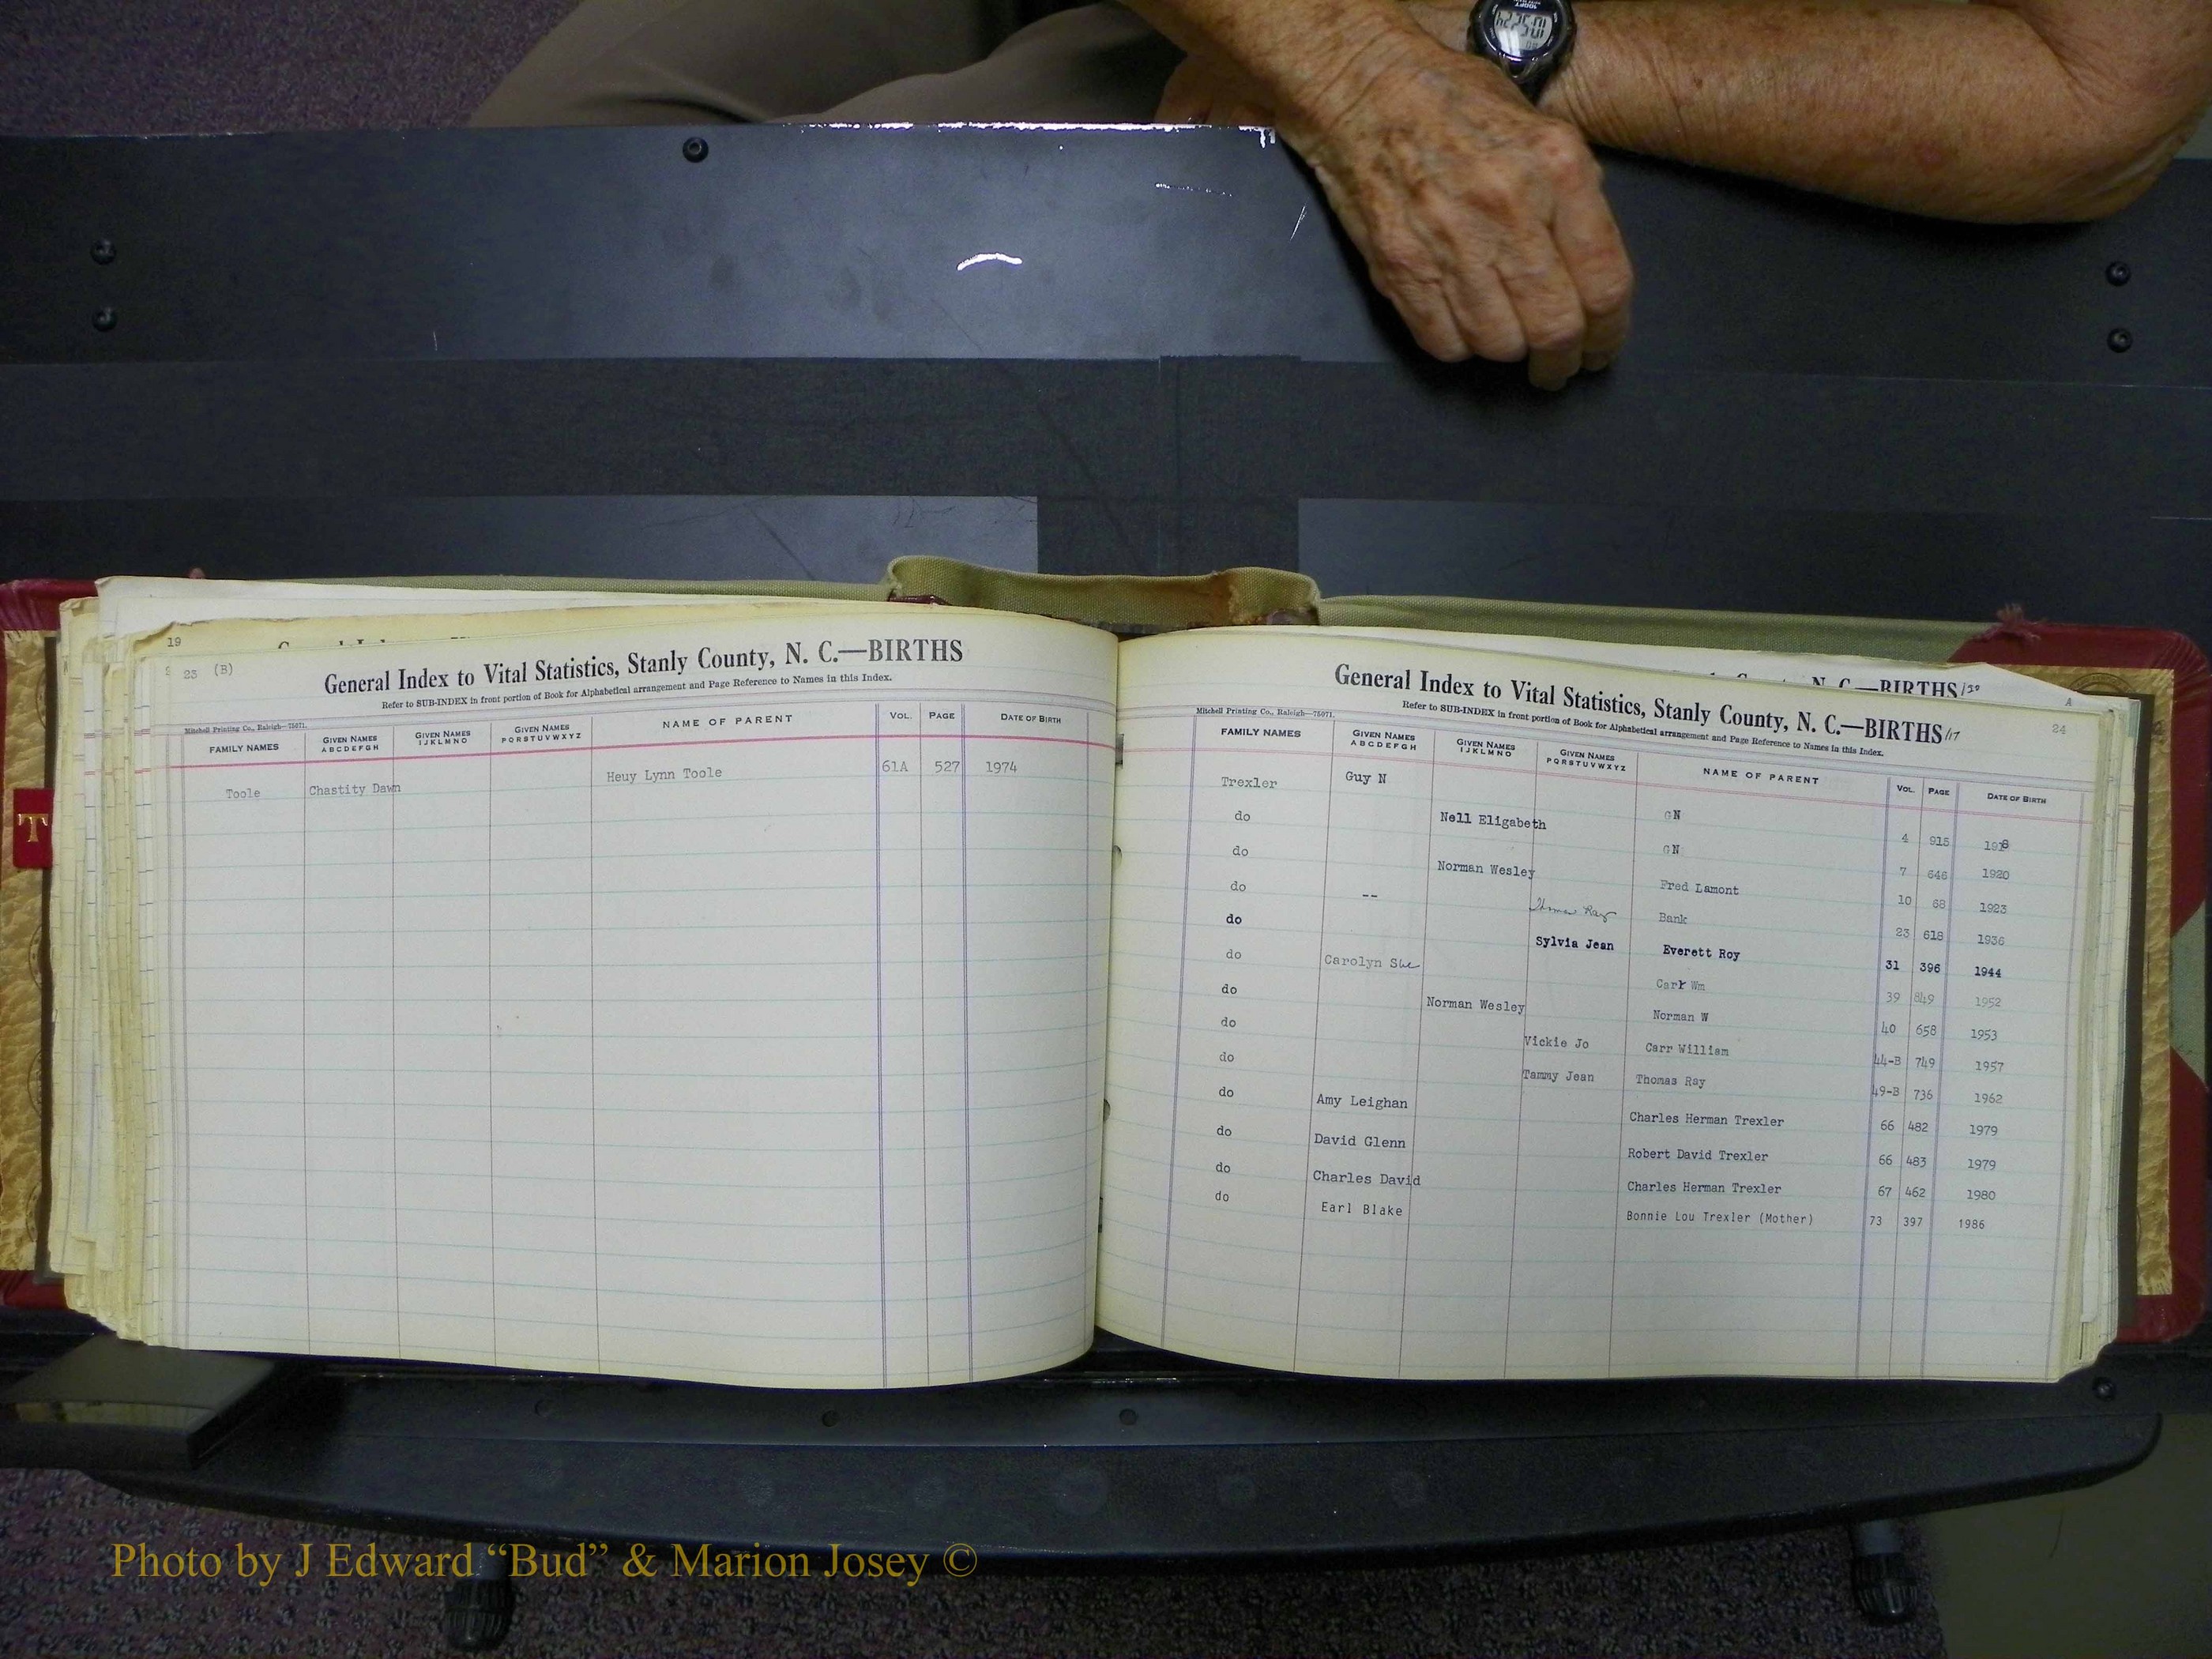 19
23 (B)
General Index to Vital Statistics, Stanly County, N. C.—BIRTHS
Refer to SUB-INDEX in front portion of Book for Alphabetical arrangement and Page Reference to Names in this Index.
Mitchell Printing Co., Raleigh—75071.
FAMILY NAMES GIVEN NAMES ABCDEFGH GIVEN NAMES IJKLMNO GIVEN NAMES PQRSTUVWXYZ NAME OF PARENT VOL. PAGE DATE OF BIRTH
Toole Chastity Dawn Heuy Lynn Toole 61A 527 1974
T
N. C.—BIRTHS
A
24
General Index to Vital Statistics, Stanly County, N. C.—BIRTHS /17
Refer to SUB-INDEX in front portion of Book for Alphabetical arrangement and Page Reference to Names in this Index.
Mitchell Printing Co., Raleigh—75071.
FAMILY NAMES GIVEN NAMES ABCDEFGH GIVEN NAMES IJKLMNO GIVEN NAMES PQRSTUVWXYZ NAME OF PARENT VOL. PAGE DATE OF BIRTH
Trexler Guy N GN 4 915 1918
do Nell Eligabeth GN 7 646 1920
do Norman Wesley Fred Lamont 10 68 1923
do -- Thomas Ray Bank 23 618 1936
do Sylvia Jean Everett Roy 31 396 1944
do Carolyn Sue Carr Wm 39 849 1952
do Norman Wesley Norman W 40 658 1953
do Vickie Jo Carr William 44-B 749 1957
do Tammy Jean Thomas Ray 49-B 736 1962
do Amy Leighan Charles Herman Trexler 66 482 1979
do David Glenn Robert David Trexler 66 483 1979
do Charles David Charles Herman Trexler 67 462 1980
do Earl Blake Bonnie Lou Trexler (Mother) 73 397 1986
Photo by J Edward “Bud” & Marion Josey ©